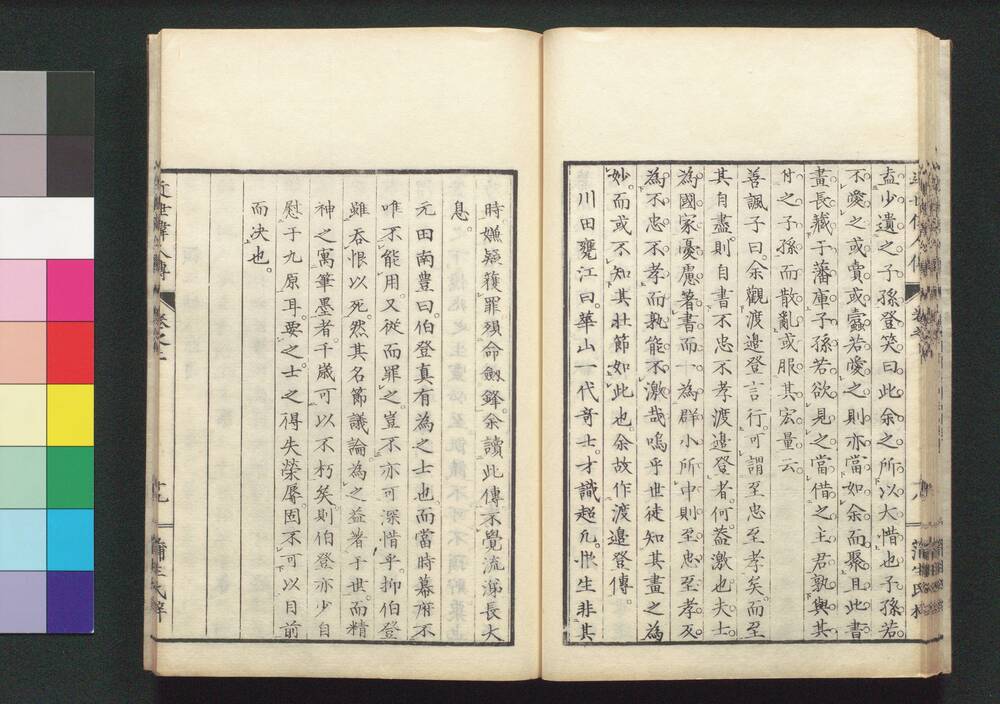 盍少遺之子孫登笑曰此余之所以大惜也子孫若
不愛之或賣或蠹若愛之則亦當如余而聚且此書
畫長藏于藩庫子孫若欲見之當借之主君孰與其
付之子孫而散亂或服其宏量云
善諷子曰余觀渡邉登言行可謂至忠至孝矣而至
其自盡則自書不忠不孝渡邉登者何葢激也夫士
為國家憂慮著書而一為群小所中則至忠至孝反
為不忠不孝而孰能不激哉嗚乎世徒知其畫之為
妙而或不知其壯節如此也余故作渡邉登傳
川田甕江曰華山一代奇士才識超凢悵生非其
時嫌疑獲罪殞命劔鋒余讀此傳不覺流涕長大
息
元田南豊曰伯登真有為之士也而當時幕府不
唯不能用又從而罪之豈不亦可深惜乎抑伯登
雖吞恨以死然其名節議論為之益著于世而精
神之寓筆墨者千歲可以不朽矣則伯登亦少自
慰于九原耳要之士之得失榮辱固不可以目前
而决也
近世偉人傳
蒲生氏梓